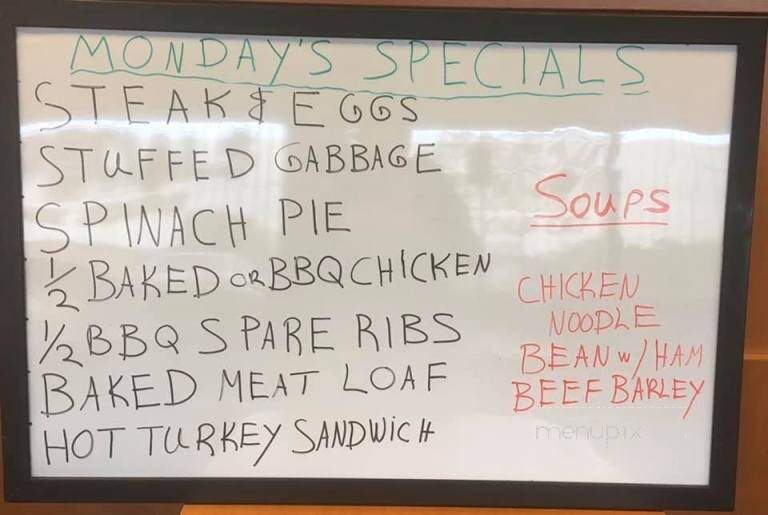 MONDAY'S SPECIALS
STEAK & EGGS
STUFFED GABBAGE
SPINACH PIE
1/2 BAKED OR BBQ CHICKEN
1/2 BBQ SPARE RIBS
BAKED MEAT LOAF
HOT TURKEY SANDWICH
SOUPS
CHICKEN
NOODLE
BEAN w/ HAM
BEEF BARLEY
menupix